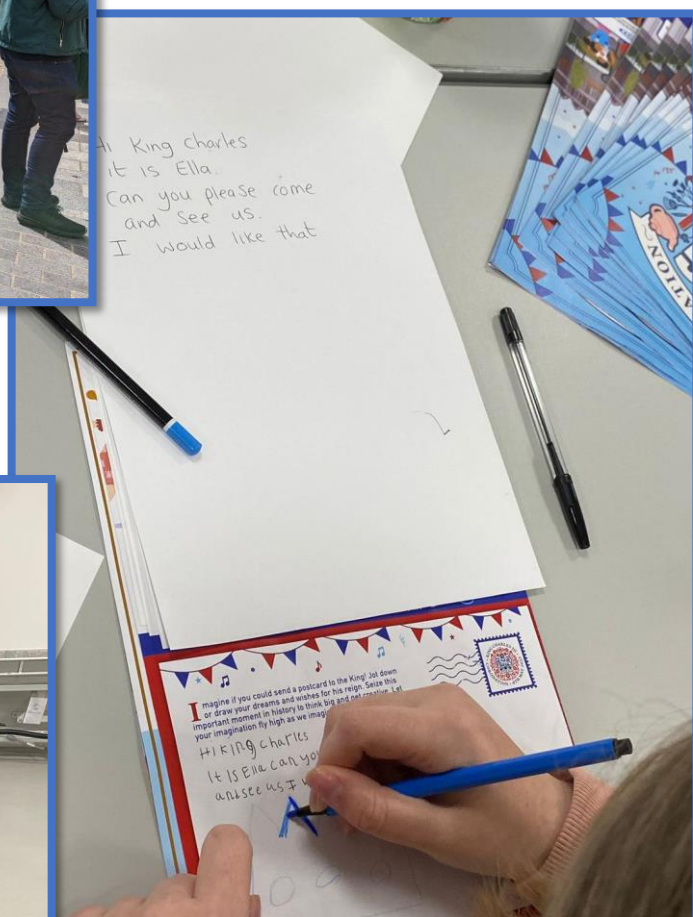 Hi King Charles
it is Ella.
Can you please come
and see us.
I would like that
ATION
Imagine if you could send a postcard to the King! Jot down
or draw your dreams and wishes for his reign. Seize this
important moment in history to think big and get creative. Let
your imagination fly high as we
Hi KING Charles
It IS Ella can you
and see us I